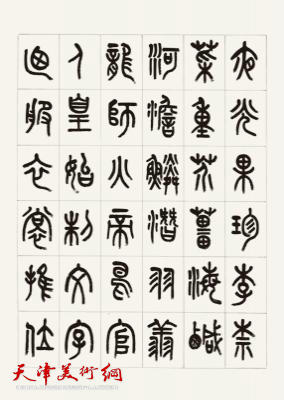 夜光果珍李柰
菜重芥薑海鹹
河澹鱗潛羽翔
龍師火帝鳥官
人皇始制文字
迺服衣裳推位
天津美術網